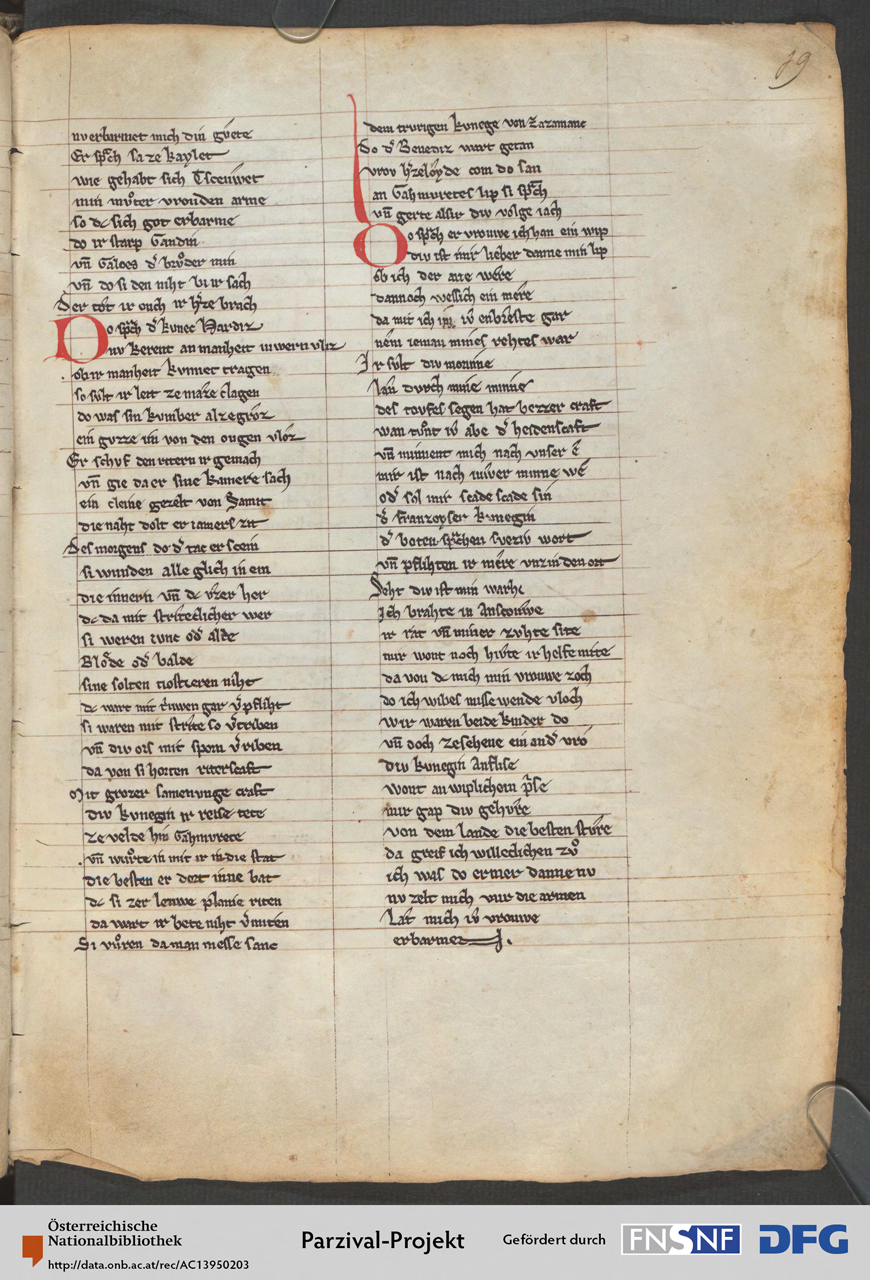 19
nv erbarmet mich din gvͤete
Er spͣch sa ze kaylet
wie gehabt sich Tscenwet
min mvͦter vrouden arme
so dc sich got erbarme
do ir starp Gandin
vn̄ Galoes d̓ brvͦder min
vn̄ do si den niht bi ir sach
Der tôt ir ouch ir h̓ze brach
Do spͣch d̓ kunec Hardiz
nv kerent an manheit iuwern vliz
ob ir manheit kvnnet tragen
so svlt ir leit ze maze clagen
do was sin kvmber al ze groz
ein gvzze im von den ougen vloz
Er schvf den ritern ir gemach
vn̄ gie da er sine kamere sach
ein cleine gezelt von Samit
die naht dolt er iamers zit
Des morgens do d̓ tac erscein
si wunden alle glich in ein
die innern vn̄ dc vzer her
dc da mit stritecliher wer
si weren iunc od̓ alde
Blode od̓ balde
sine solten tiostieren niht
dc wart mit triwen gar v̓pfliht
si waren mit strite so v̓triben
vn̄ div ors mit sporn v̓riben
da von si horten riterscaft
Mit grozer samenunge craft
div kvnegin ir reise tete
ze velde hin Gahmvrete
vn̄ wurͦte in mit ir in die stat
die besten er dort inne bat
dc si zer lenwe planie riten
da wart ir bete niht v̓miten
Si vvͦren da man messe sanc
dem trurigen kvnege von Zazamanc
Do d̓ Benediz wart getan
vrov h̓zeloyde com do san
an Gahmuretes lip si spͣch
vn̄ gerte als ir div volge iach
Do spͣch er vrouwe ich han ein wip
div ist mir lieber danne min lip
ob ich der ane were
dannoch wessich ein mere
da mit ich iv enbreste gar
nem ieman mines rehtes war
Ir svlt die morinne
lan durch mine minne
des toufes segen hat bezzer craft
wan tvͦnt iv̓ abe d̓ heidenscaft
vn̄ minnent mich nach unser ê
mir ist nach iuwer minne wê
od̓ sol mir scade scade sin
d̓ Franzoyser kvnegin
d̓ boten spͣchen sveziv wort
vn̄ pflihten ir mere vnz in den ort
Seht div ist min warhe
Ich brahte in Anscouwe
ir rat vn̄ miner zvhte site
mir wont noch hivte ir helfe mite
da von dc mich min vrouwe zoch
do ich wibes missewende vloch
wir waren beide kinder do
vn̄ doch ze sehene ein and̓ vro
div kvnegin Anflise
wont an wiplichem pͥse
mir gap div gehvre
von dem lande die besten stvre
da greif ich willeclichen zvͦ
ich was do ermer danne nv
nv zelt mich vur die armen
Lat mich iv̓ vrouwe
erbarmen.
Österreichische
Nationalbibliothek
http://data.onb.ac.at/rec/AC13950203
Parzival-Projekt
Gefördert durch
FNSNF
DFG